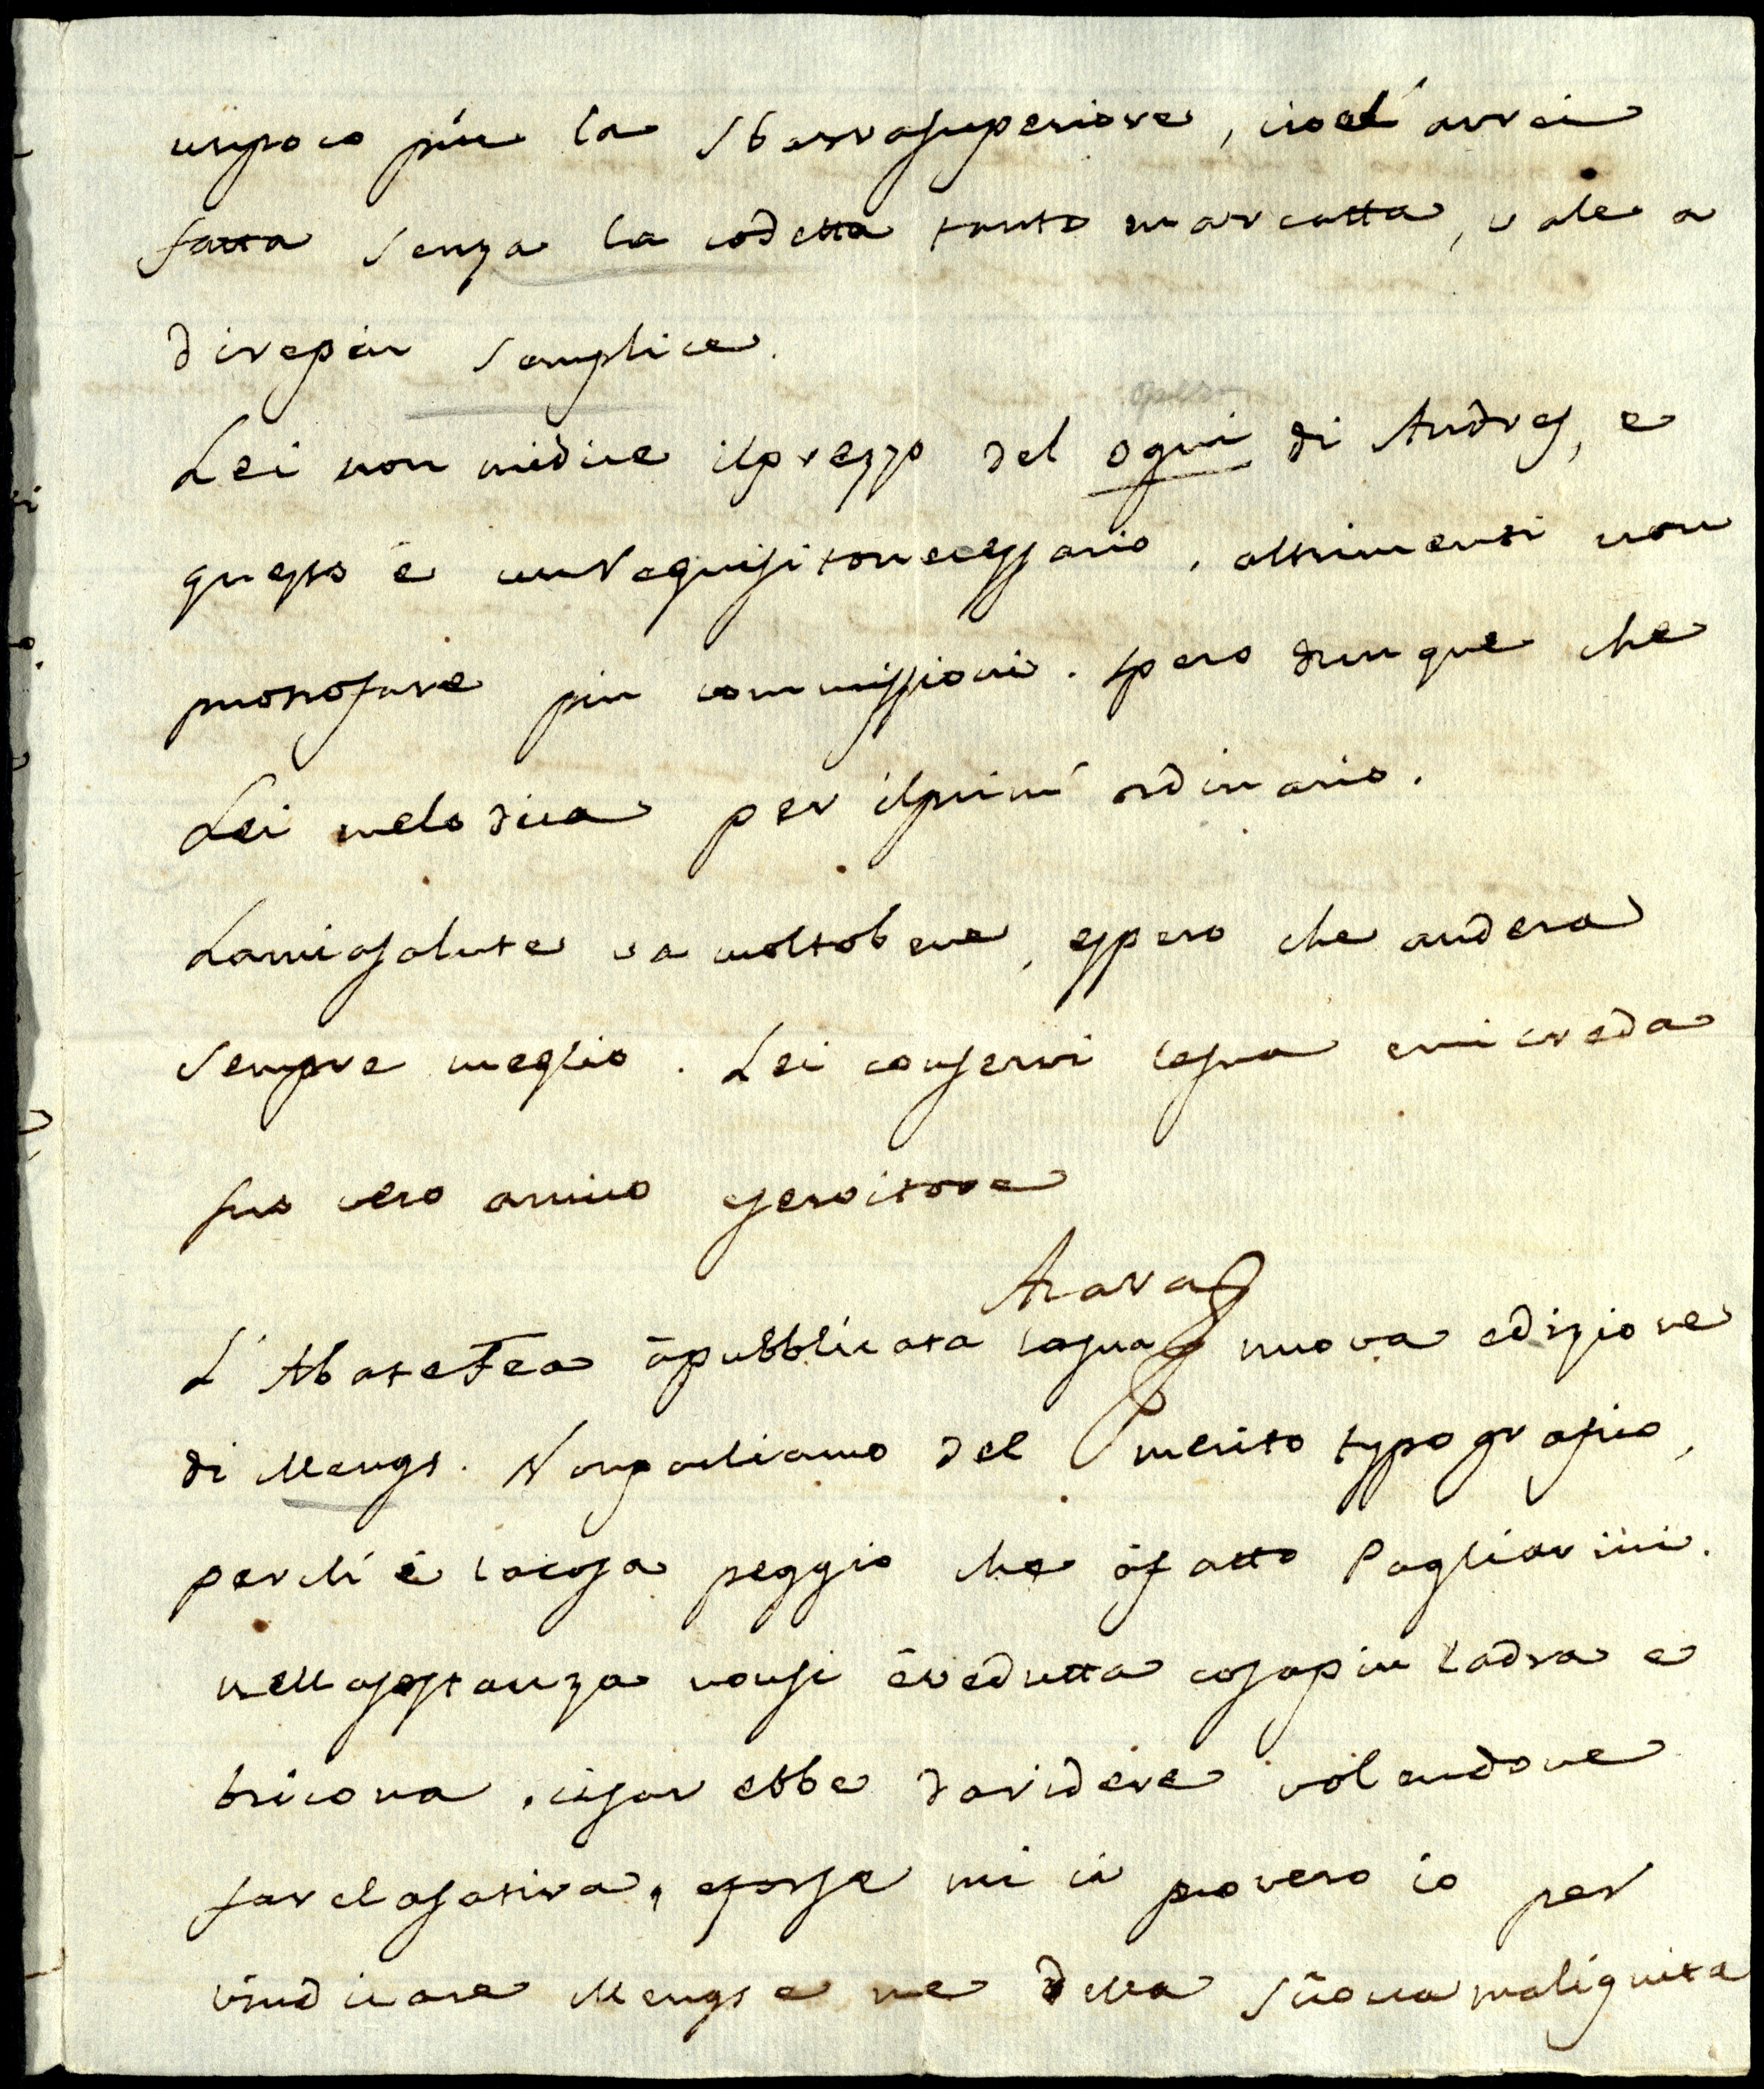 unpoco piu la sbarrasuperiore, cioe l'avrei
fatta senza la codetta tanto marcatta, vale a
direpiu semplice.
opera
Lei non midice ilprezzo del ogni di Andres, e
questo è unrequisitonecessario, altrimenti non
possofare piu commissioni. spero dunque che
Lei melodica per ilprimo ordinario.
Lamiasalute va moltobene, espero che andera
sempre meglio. Lei conservi lasua emicreda
suo vero amico eservitore
Azara
L'AbateFea àpubblicata lasua nuova edizione
di Mengs. Nonparliamo del merito typografico,
perchè è lacosa peggio che àfatto Pagliarini.
nellasostanza nonsi èvedutta cosapiu ladra e
bricona. cisarebbe daridere volendone
farelasatira, eforse mi ci provero io per
vindicare Mengs e me della sciocca malignita